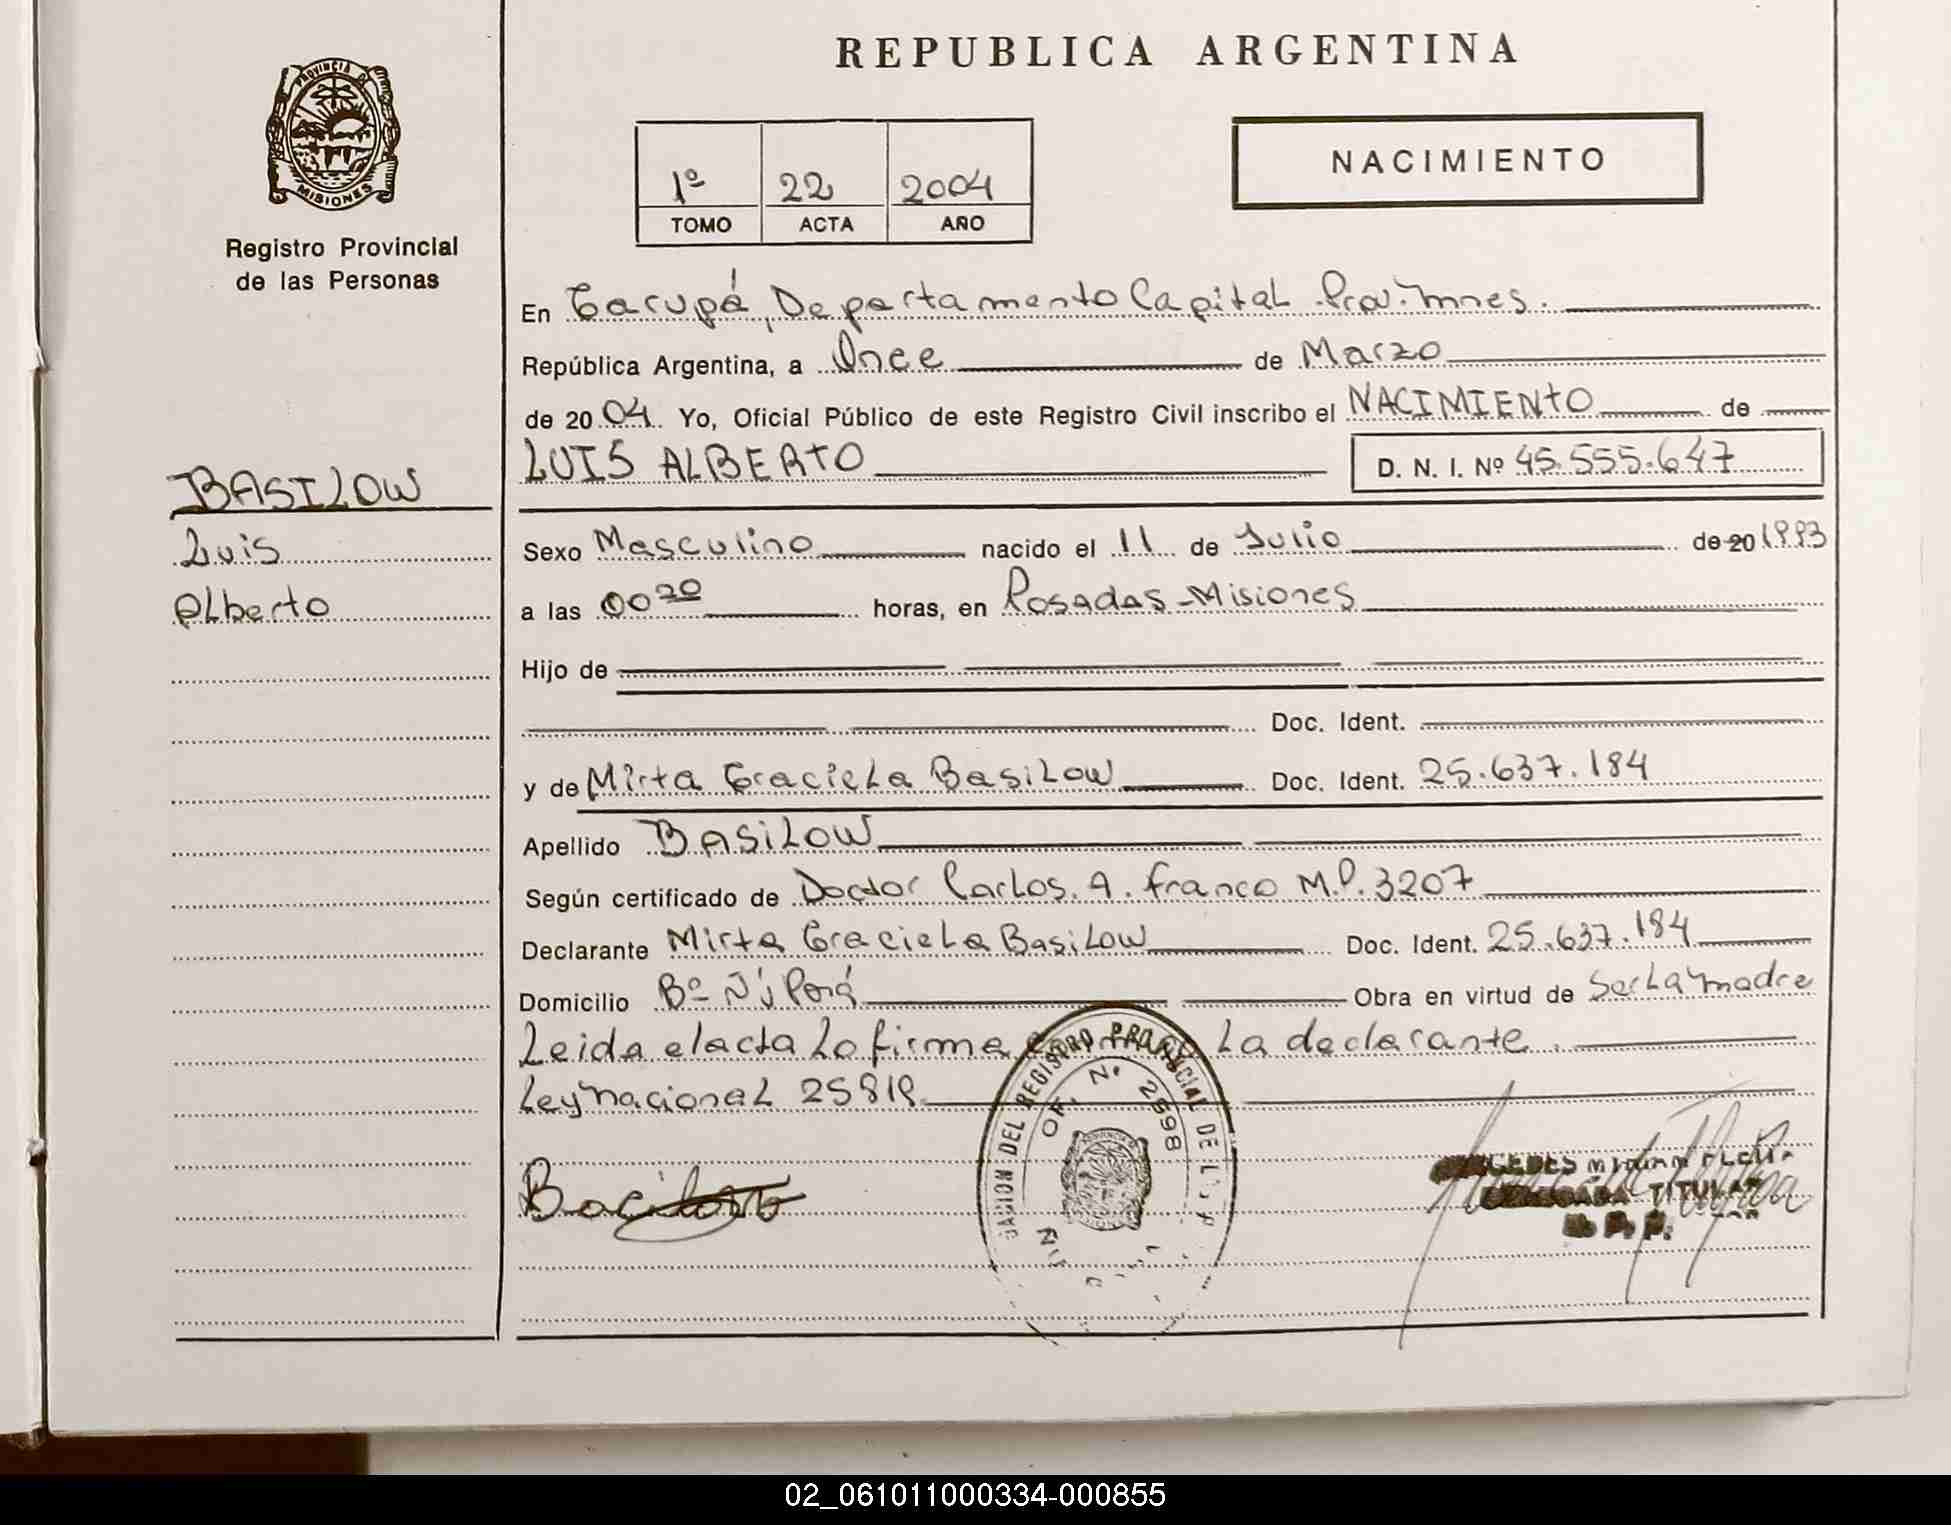 REPUBLICA ARGENTINA
PROVINCIA DE
MISIONES
Registro Provincial
de las Personas
1º 22 2004
TOMO ACTA AÑO
NACIMIENTO
En Garupá, Departamento Capital Prov. Mnes.
República Argentina, a Once de Marzo
de 20 04 Yo, Oficial Público de este Registro Civil inscribo el NACIMIENTO de
LUIS ALBERTO D. N. I. Nº 45.555.647
BASILOW
Luis
Alberto
Sexo Masculino nacido el 11 de Julio de 20 1993
a las 00 20 horas, en Posadas - Misiones
Hijo de
Doc. Ident.
y de Mirta Graciela Basilow Doc. Ident. 25.637.184
Apellido BASiLOW
Según certificado de Doctor Carlos. A. Franco M.P. 3207
Declarante Mirta Graciela Basilow Doc. Ident. 25.637.184
Domicilio Bº Ñú Porá Obra en virtud de Ser La Madre
Leida el acta Lo firma La declarante.
Ley Nacional 25819
DEL REGISTRO PROVINCIAL DE L
OF. Nº 2598
TITULAR
R. P. P.
02_061011000334-000855